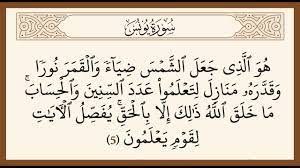 سُورَةُ يُونُسَ
هُوَ ٱلَّذِى جَعَلَ ٱلشَّمْسَ ضِيَآءً وَٱلْقَمَرَ نُورًا
وَقَدَّرَهُۥ مَنَازِلَ لِتَعْلَمُوا۟ عَدَدَ ٱلسِّنِينَ وَٱلْحِسَابَ ۚ
مَا خَلَقَ ٱللَّهُ ذَٰلِكَ إِلَّا بِٱلْحَقِّ ۚ يُفَصِّلُ ٱلْـَٔايَـٰتِ
لِقَوْمٍ يَعْلَمُونَ (5)